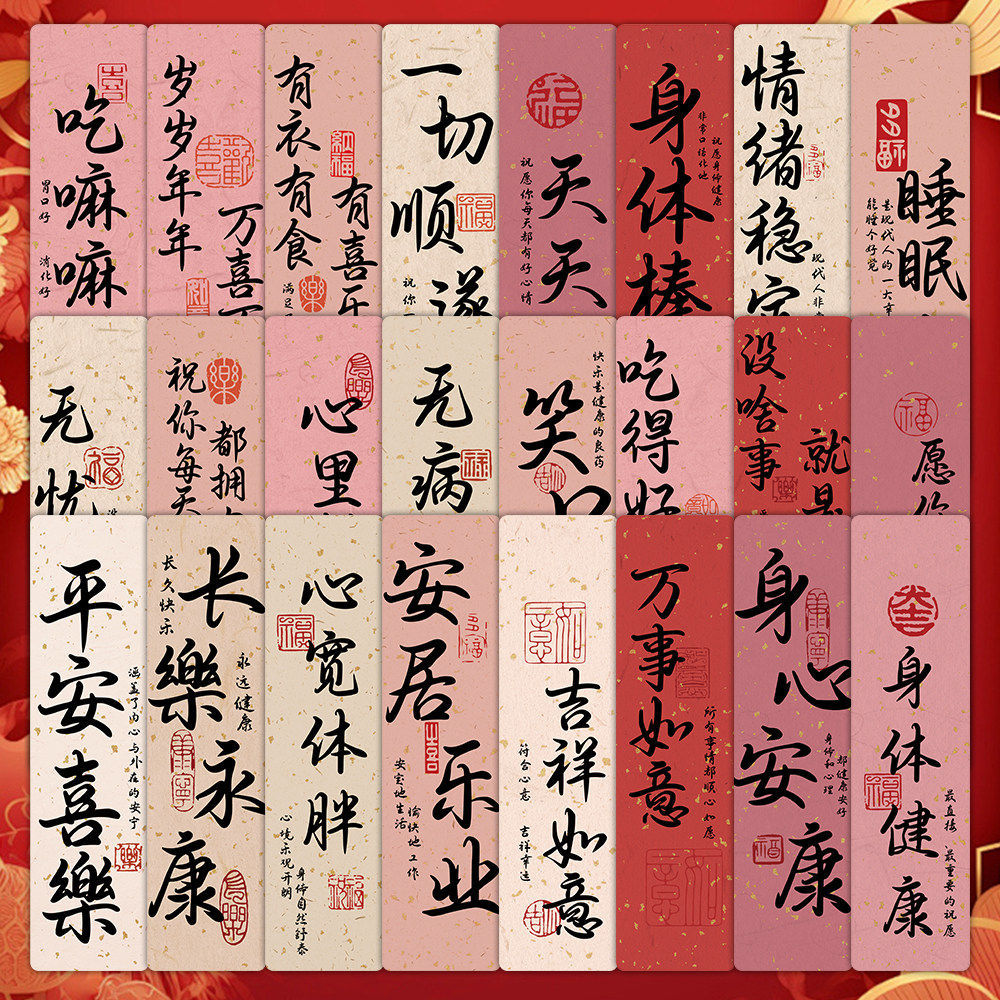 吃嘛嘛
胃口好
消化好
岁岁年年
万喜
有衣有食
有喜乐
满足
一切
顺遂
祝你
天天
祝愿你每天都有好心情
身体棒
祝愿身体健康
非常口语化地
情绪稳定
现代人非常
睡眠
是现代人的一大幸
能睡个好觉
无忧
祝你每天
都拥
心里
无病
笑口
快乐是健康的良药
吃得好
没啥事
就是
愿你
平安喜樂
涵盖了内心与外在的安宁
长樂永康
长久快乐
永远健康
心宽体胖
心境乐观开朗
身体自然舒泰
安居乐业
安宝地生活
愉快地工作
吉祥如意
符合心意
吉祥幸运
万事如意
所有事情都顺心如愿
身心安康
身体和心理
都健康安好
身体健康
最直接
最重要的祝愿